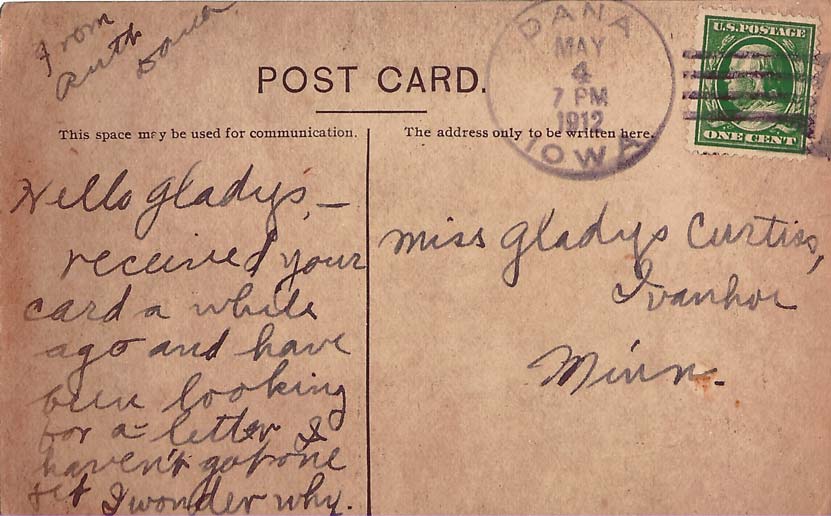 From
Ruth
Dana
POST CARD.
This space may be used for communication.
The address only to be written here.
DANA
MAY
4
7 PM
1912
IOWA
U.S. POSTAGE
ONE CENT
Hello Gladys, —
received your
card a while
ago and have
been looking
for a letter I
haven't got one
yet I wonder why.
Miss Gladys Curtiss,
Ivanhoe
Minn.